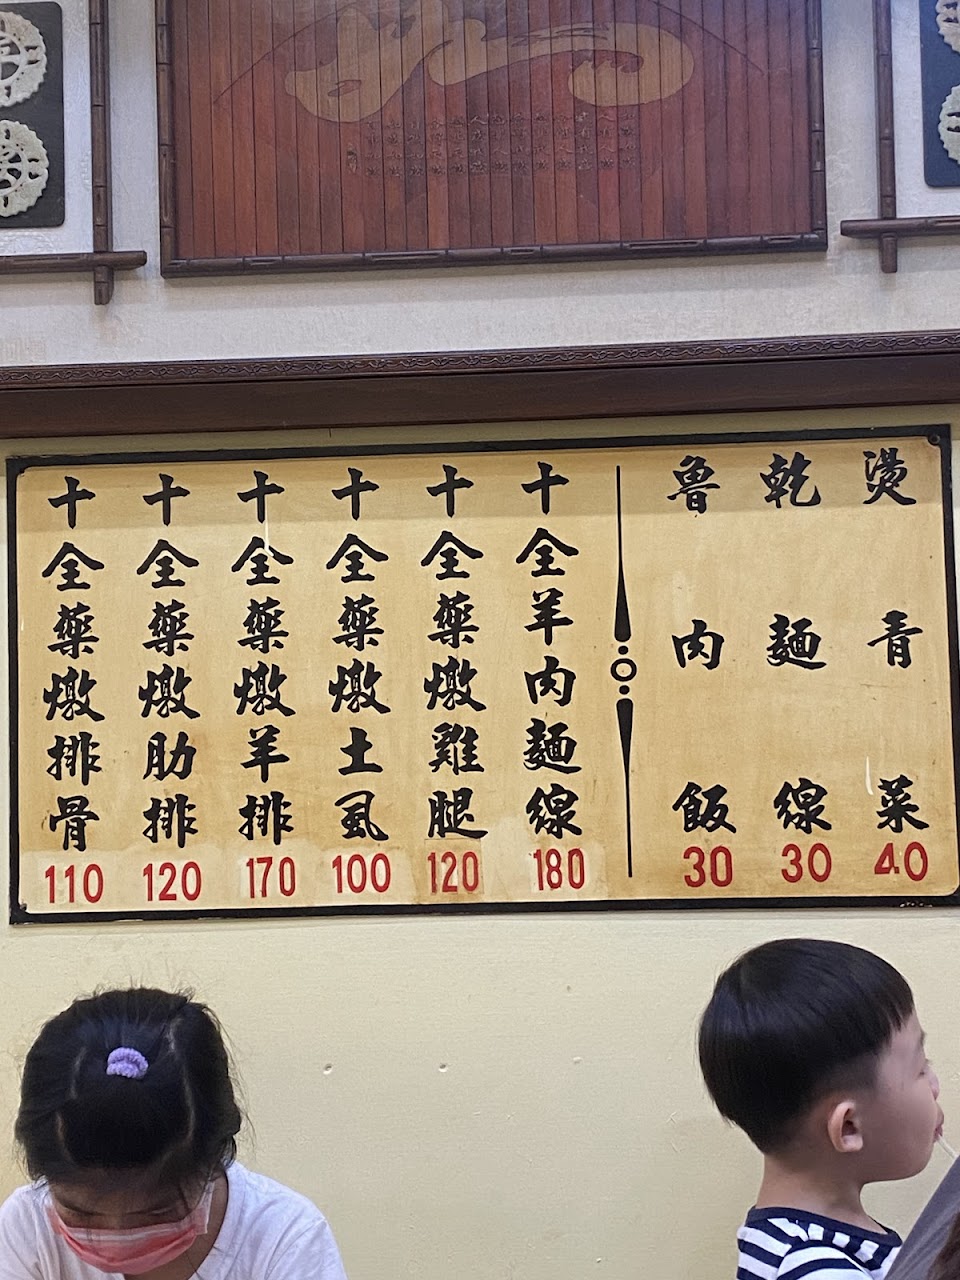 十全藥燉排骨 110
十全藥燉肋排 120
十全藥燉羊排 170
十全藥燉土虱 100
十全藥燉雞腿 120
十全羊肉麵線 180
魯肉飯 30
乾麵線 30
燙青菜 40